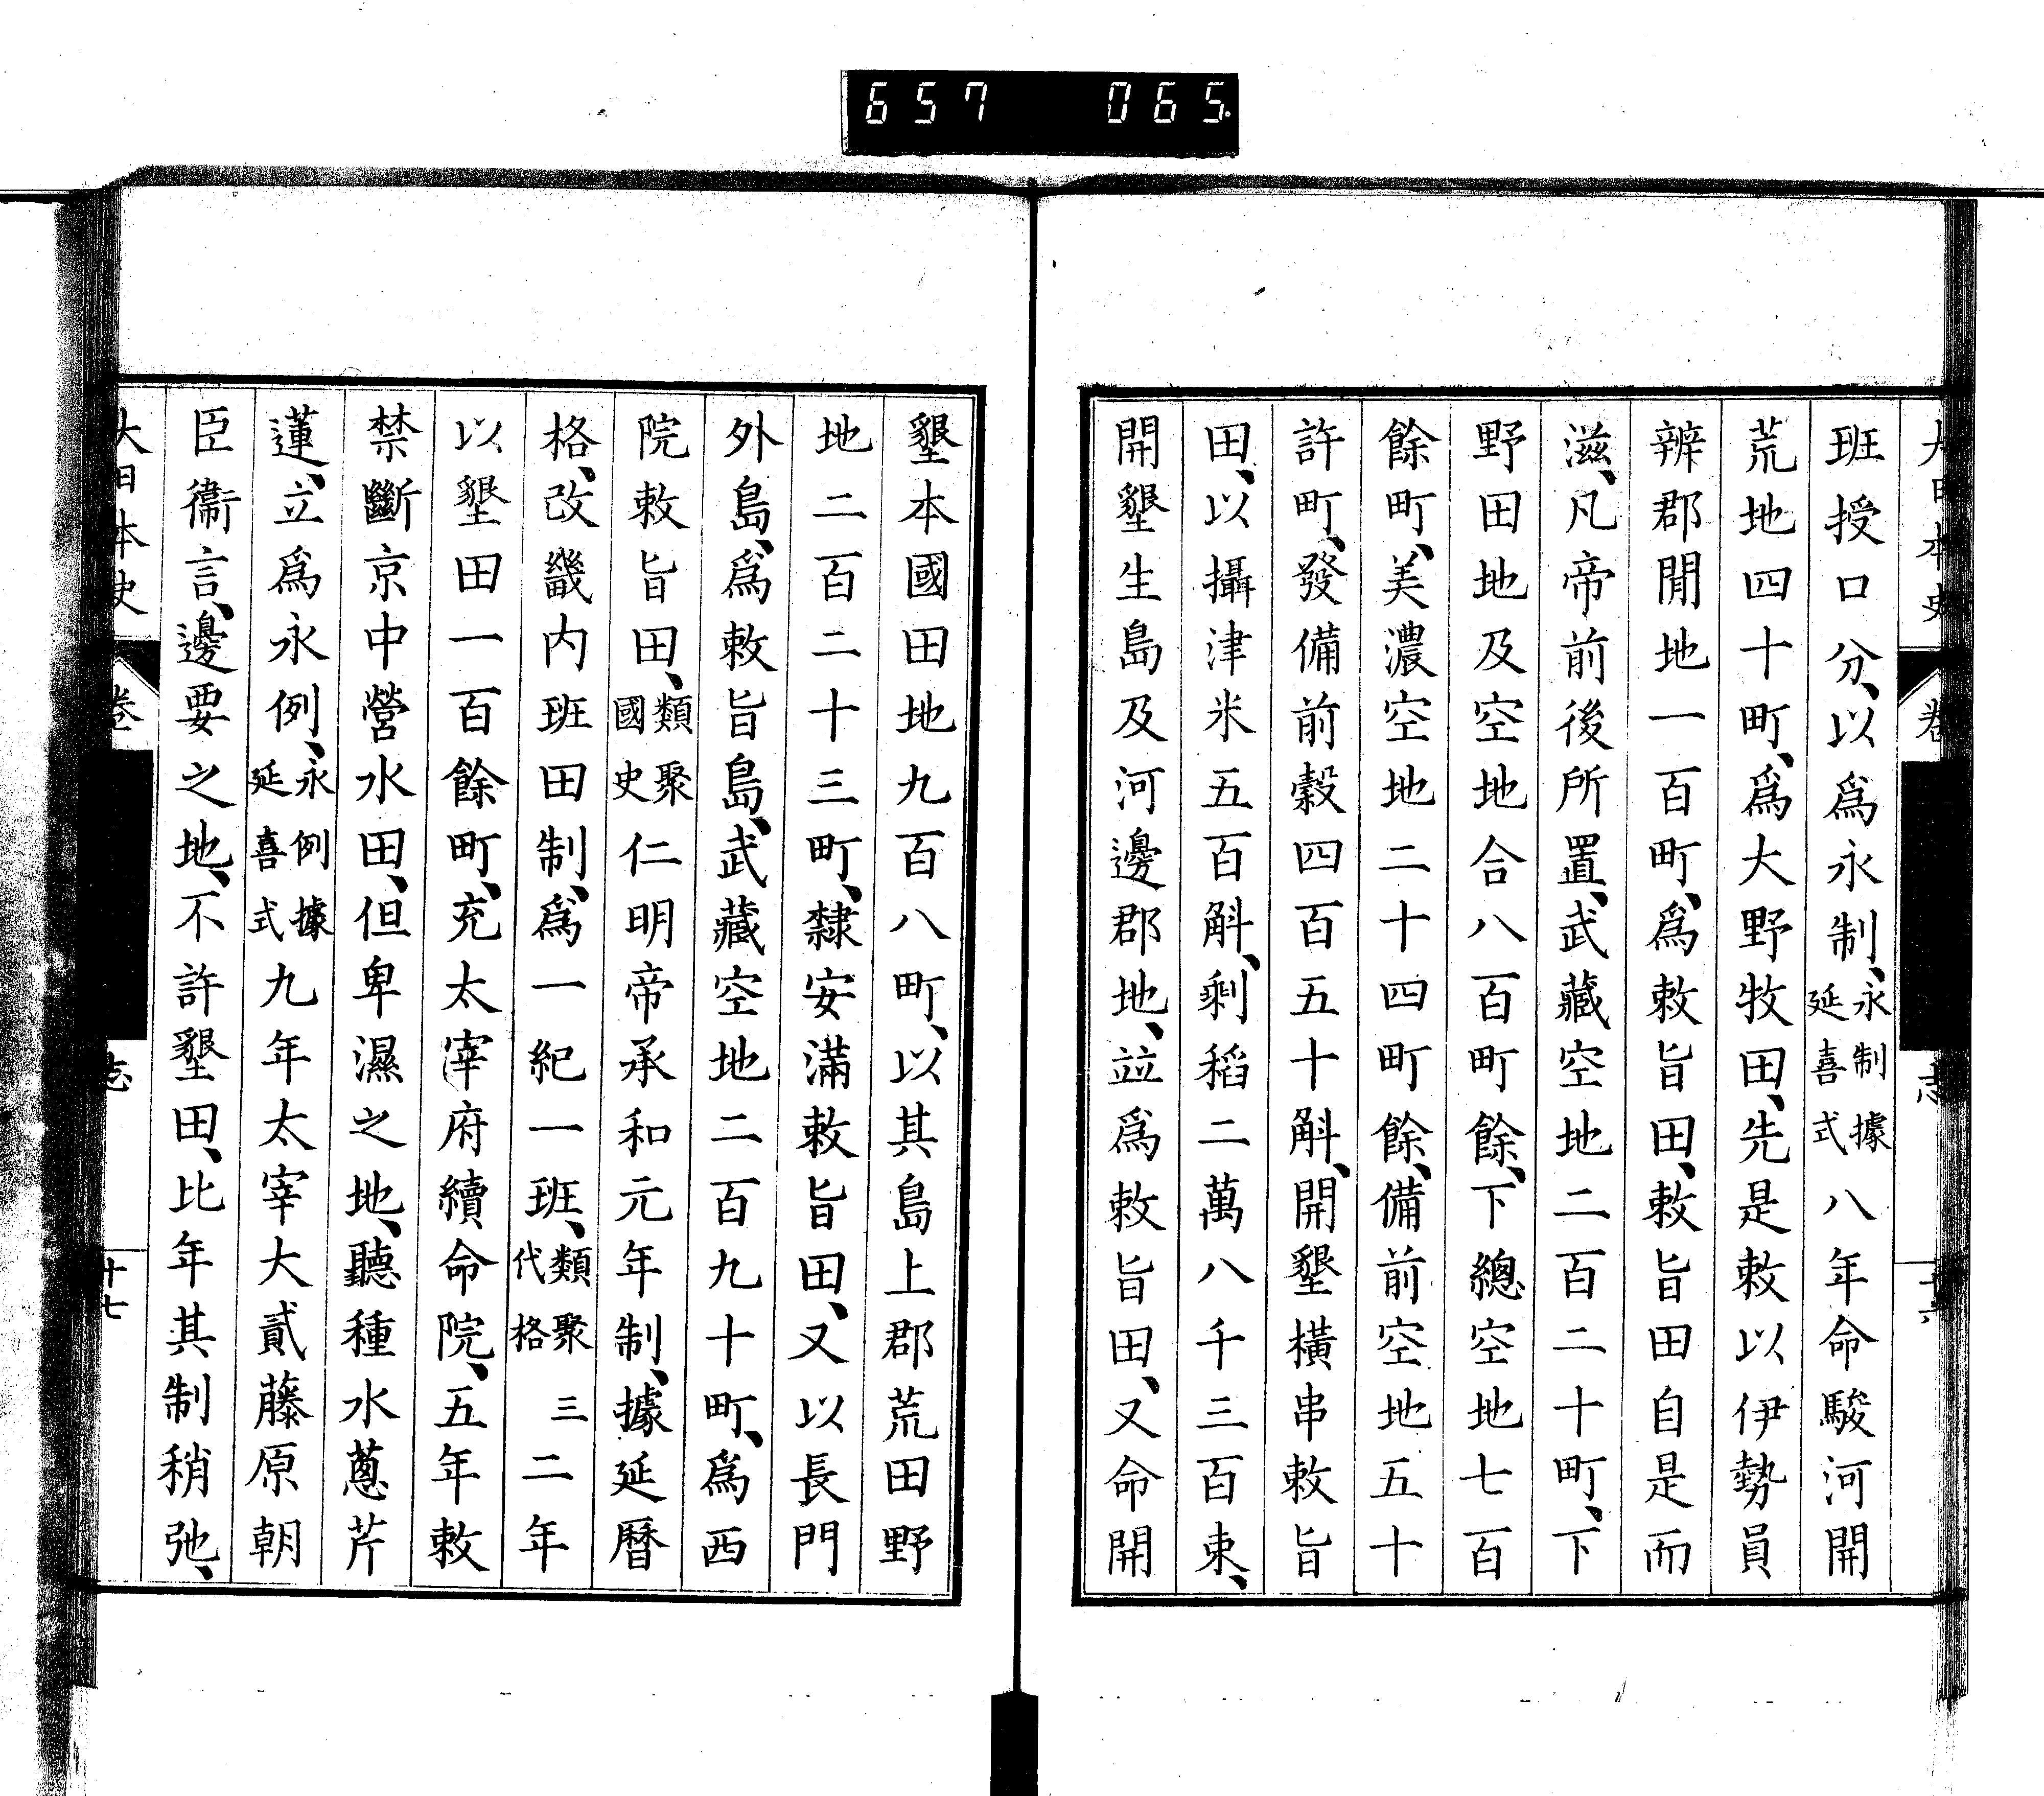 657 065
班授口分、以爲永制、永制據延喜式八年命駿河開
荒地四十町、爲大野牧田、先是敕以伊勢員
辨郡閒地一百町、爲敕旨田、敕旨田自是而
滋、凡帝前後所置、武藏空地二百二十町、下
野田地及空地合八百町餘、下總空地七百
餘町、美濃空地二十四町餘、備前空地五十
許町、發備前穀四百五十斛、開墾横串敕旨
田、以攝津米五百斛、剩稻二萬八千三百束、
開墾生島及河邊郡地、竝爲敕旨田、又命開
墾本國田地九百八町、以其島上郡荒田野
地二百二十三町、隸安滿敕旨田、又以長門
外島、爲敕旨島、武藏空地二百九十町、爲西
院敕旨田、類聚國史仁明帝承和元年制、據延曆
格、改畿内班田制、爲一紀一班、類聚三代格二年
以墾田一百餘町、充太宰府續命院、五年敕
禁斷京中營水田、但卑濕之地、聽種水蔥芹
蓮、立爲永例、永例據延喜式九年太宰大貳藤原朝
臣衞言、邊要之地、不許墾田、比年其制稍弛、
大日本史 卷 志 十七